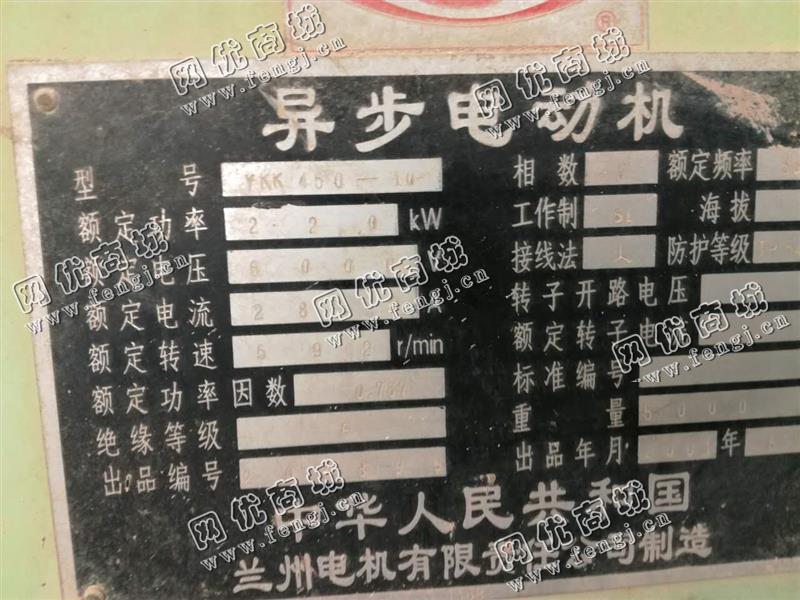 ®
异步电动机
型号 YKK 450-10 相数 额定频率
额定功率 220 kW 工作制 S1 海拔
额定电压 6000 接线法 人 防护等级
额定电流 28 A 转子开路电压
额定转速 592 r/min 额定转子电
额定功率因数 标准编号
绝缘等级 F 重量 5000
出品编号 出品年月 年
中华人民共和国
兰州电机有限责任公司制造
网优商城
www.fengj.cn
网优商城
www.fengj.cn
网优商城
www.fengj.cn
网优商城
www.fengj.cn
网优商城
www.fengj.cn
网优商城
www.fengj.cn